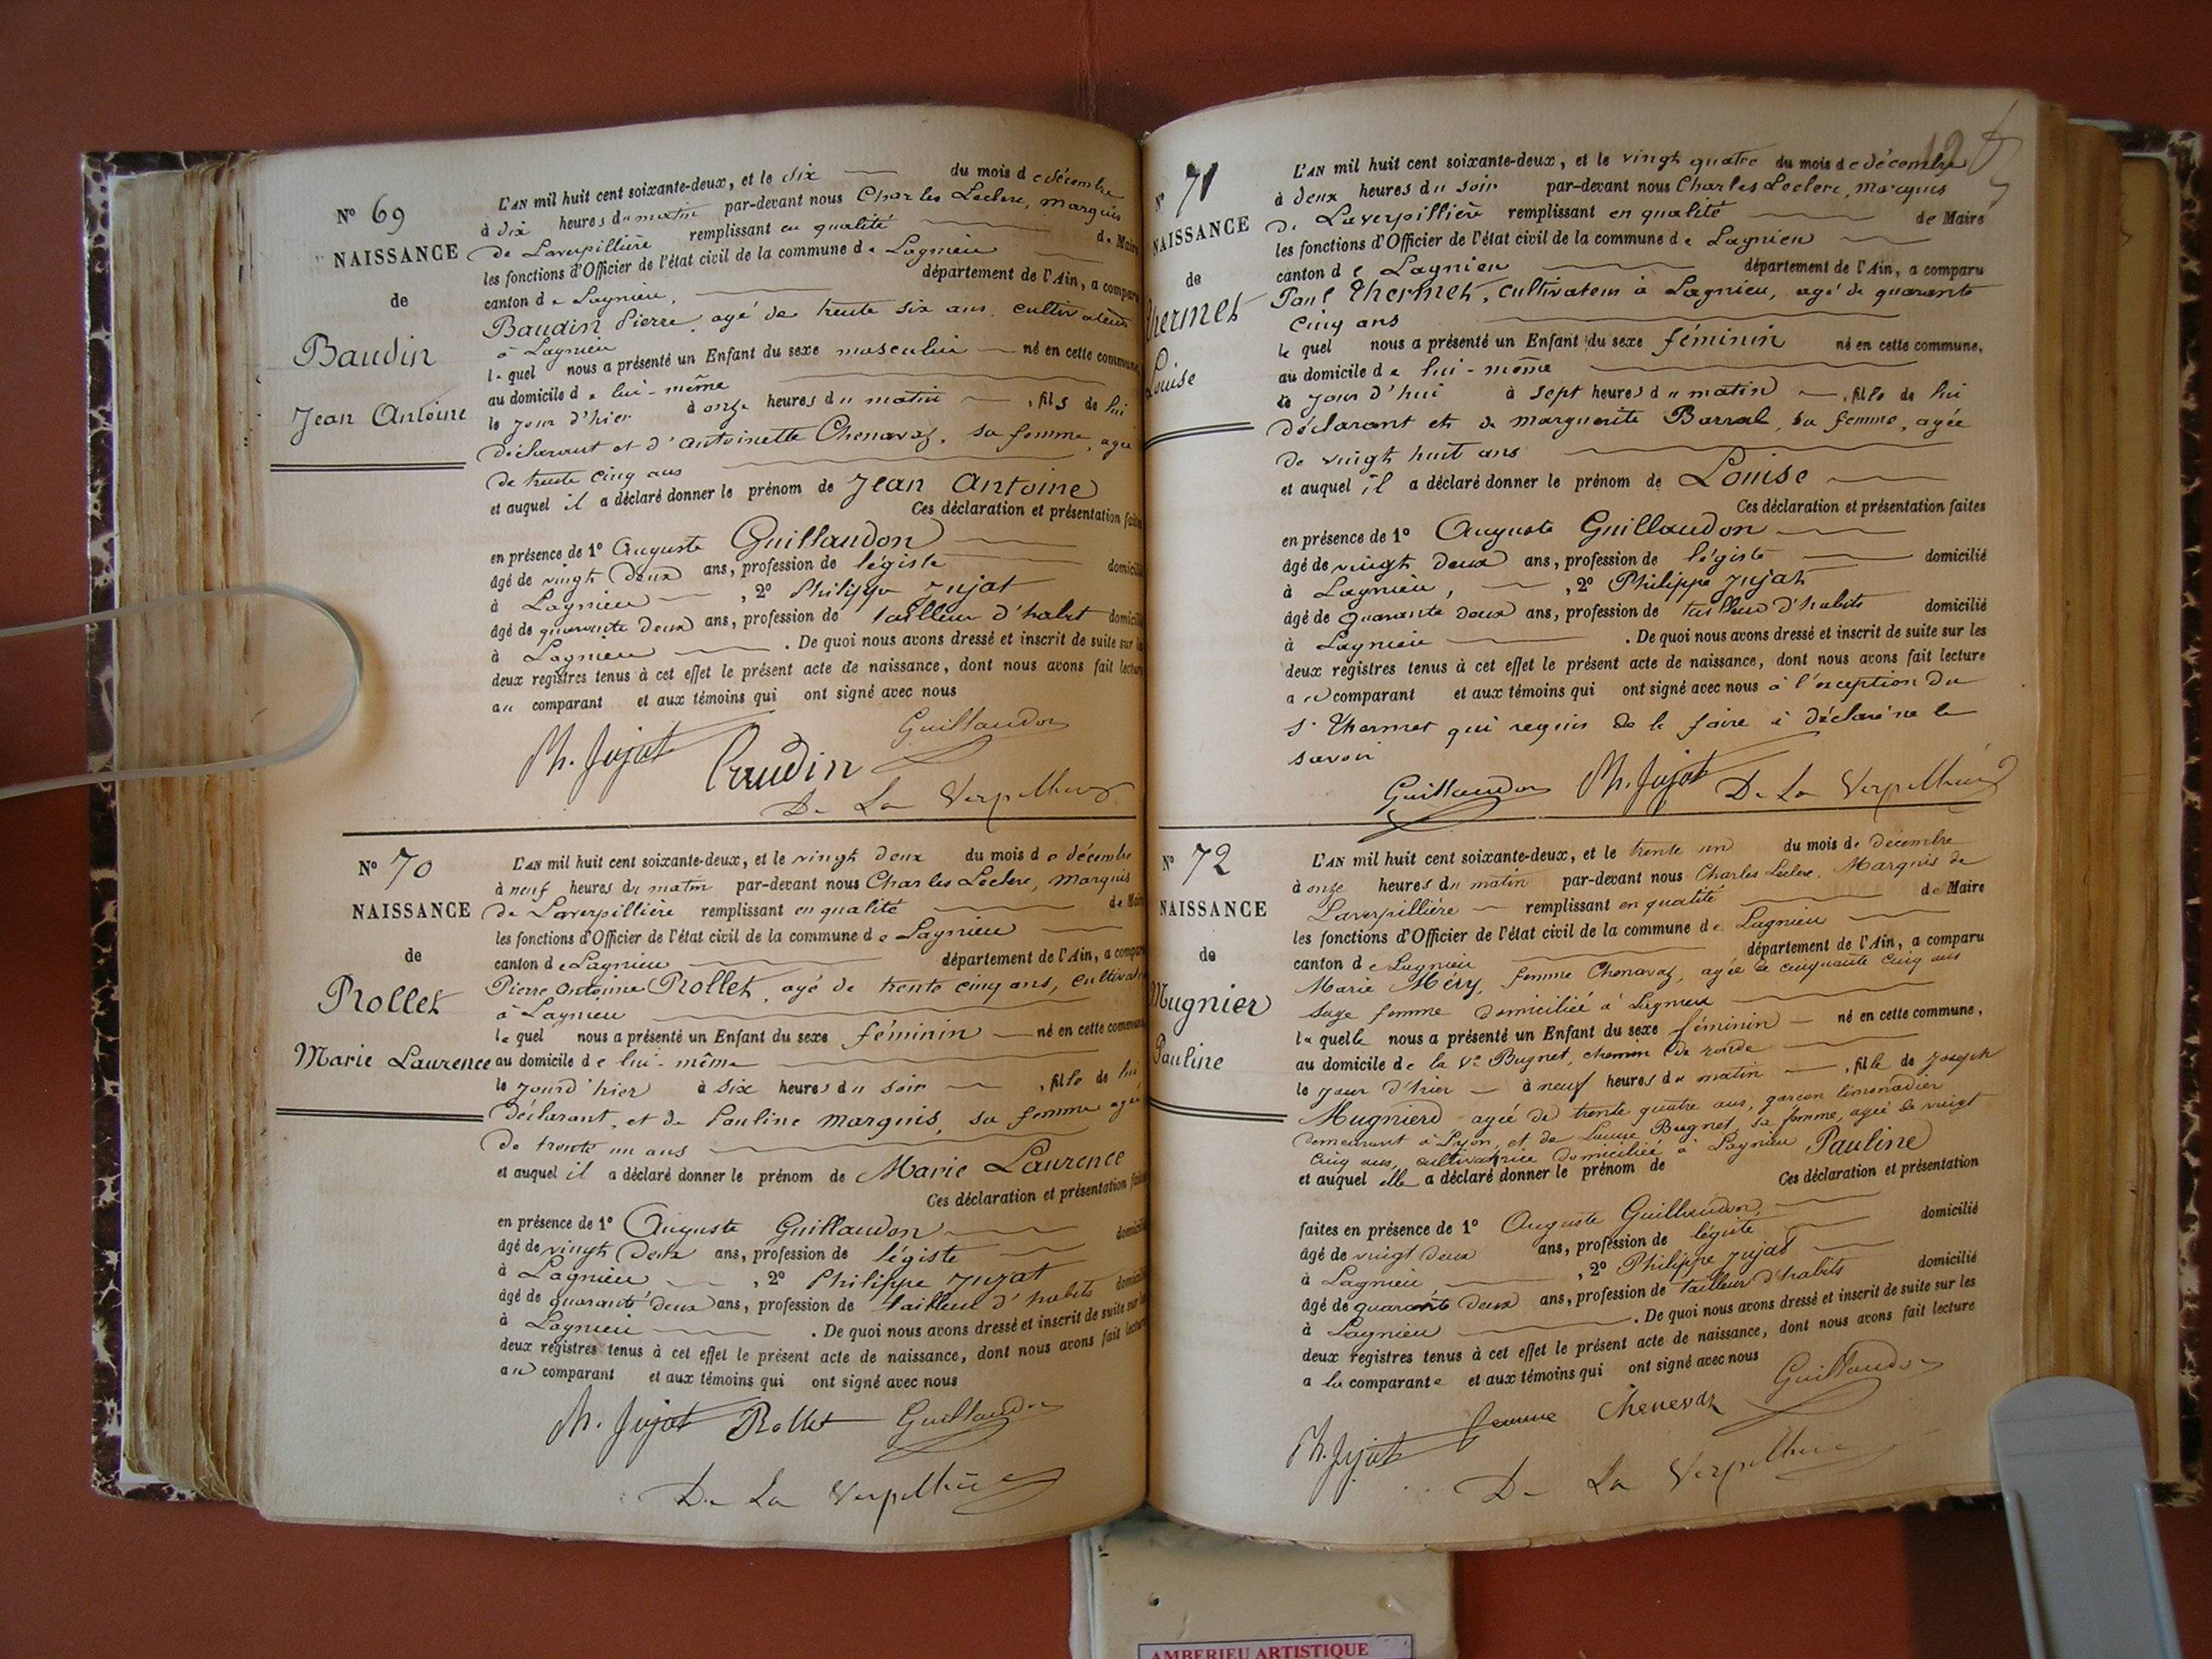 N° 69
NAISSANCE
de
Baudin
Jean Antoine
L'AN mil huit cent soixante-deux, et le six du mois de décembre
à dix heures du matin par-devant nous Charles Leclerc, marquis
de Laverpillière remplissant en qualité de Maire
les fonctions d'Officier de l'état civil de la commune de Lagnieu
canton de Lagnieu, département de l'Ain, a comparu
Baudin Pierre, agé de trente six ans, cultivateur
à Lagnieu
lequel nous a présenté un Enfant du sexe masculin né en cette commune,
au domicile de lui-même
le jour d'hier à onze heures du matin, fils de lui
déclarant et d'antoinette Chenavaz, sa femme, agée
de trente cinq ans
et auquel il a déclaré donner le prénom de Jean Antoine
Ces déclaration et présentation faites
en présence de 1° Auguste Guillaudon
âgé de vingt deux ans, profession de légiste domicilié
à Lagnieu, 2° Philippe Jujat
âgé de quarante deux ans, profession de tailleur d'habit domicilié
à Lagnieu. De quoi nous avons dressé et inscrit de suite sur les
deux registres tenus à cet effet le présent acte de naissance, dont nous avons fait lecture
au comparant et aux témoins qui ont signé avec nous
Guillaudon
Ph. Jujat Baudin
De La Verpillière
N° 70
NAISSANCE
de
Rollet
Marie Laurence
L'AN mil huit cent soixante-deux, et le vingt deux du mois de décembre
à neuf heures du matin par-devant nous Charles Leclerc, marquis
de Laverpillière remplissant en qualité de Maire
les fonctions d'Officier de l'état civil de la commune de Lagnieu
canton de Lagnieu département de l'Ain, a comparu
Pierre Antoine Rollet, agé de trente cinq ans, cultivateur
à Lagnieu
lequel nous a présenté un Enfant du sexe féminin né en cette commune
au domicile de lui-même
le jour d'hier à six heures du soir, fille de lui
déclarant, et de Pauline Marquis, sa femme agée
de trente un ans
et auquel il a déclaré donner le prénom de Marie Laurence
Ces déclaration et présentation faites
en présence de 1° Auguste Guillaudon
âgé de vingt deux ans, profession de légiste domicilié
à Lagnieu, 2° Philippe Jujat
âgé de quarante deux ans, profession de tailleur d'habits domicilié
à Lagnieu. De quoi nous avons dressé et inscrit de suite sur les
deux registres tenus à cet effet le présent acte de naissance, dont nous avons fait lecture
au comparant et aux témoins qui ont signé avec nous
Ph. Jujat Rollet Guillaudon
De La Verpillière
N° 71
NAISSANCE
de
Thermet
Louise
L'AN mil huit cent soixante-deux, et le vingt quatre du mois de décembre
à deux heures du soir par-devant nous Charles Leclerc, marquis
de Laverpillière remplissant en qualité de Maire
les fonctions d'Officier de l'état civil de la commune de Lagnieu
canton de Lagnieu département de l'Ain, a comparu
Paul Thermet, cultivateur à Lagnieu, agé de quarante
cinq ans
lequel nous a présenté un Enfant du sexe féminin né en cette commune,
au domicile de lui-même
le jour d'hui à sept heures du matin, fille de lui
déclarant et de marguerite Barral, sa femme, agée
de vingt huit ans
et auquel il a déclaré donner le prénom de Louise
Ces déclaration et présentation faites
en présence de 1° Auguste Guillaudon
âgé de vingt deux ans, profession de légiste domicilié
à Lagnieu, 2° Philippe Jujat
âgé de quarante deux ans, profession de tailleur d'habits domicilié
à Lagnieu. De quoi nous avons dressé et inscrit de suite sur les
deux registres tenus à cet effet le présent acte de naissance, dont nous avons fait lecture
au comparant et aux témoins qui ont signé avec nous à l'exception du
s. Thermet qui requis de le faire a déclaré ne le
savoir
Guillaudon Ph. Jujat De La Verpillière
N° 72
NAISSANCE
de
Mugnier
Pauline
L'AN mil huit cent soixante-deux, et le trente un du mois de décembre
à onze heures du matin par-devant nous Charles Leclerc, Marquis de
Laverpillière remplissant en qualité de Maire
les fonctions d'Officier de l'état civil de la commune de Lagnieu
canton de Lagnieu département de l'Ain, a comparu
Marie Méry, femme Chenavaz, agée de cinquante cinq ans
sage femme domiciliée à Lagnieu
laquelle nous a présenté un Enfant du sexe féminin né en cette commune,
au domicile de la Ve Bugnet, chemin de ronde
le jour d'hier à neuf heures du matin, fille de Joseph
Mugnierd agée de trente quatre ans, garcon limonadier
demeurant à Lyon, et de Louise Bugnet, sa femme, agée de vingt
cinq ans, cultivatrice domiciliée à Lagnieu
et auquel elle a déclaré donner le prénom de Pauline
Ces déclaration et présentation
faites en présence de 1° Auguste Guillaudon,
âgé de vingt deux ans, profession de légiste domicilié
à Lagnieu, 2° Philippe Jujat
âgé de quarante deux ans, profession de tailleur d'habits domicilié
à Lagnieu. De quoi nous avons dressé et inscrit de suite sur les
deux registres tenus à cet effet le présent acte de naissance, dont nous avons fait lecture
a la comparante et aux témoins qui ont signé avec nous
Guillaudon
Ph. Jujat femme Chenevaz
De La Verpillière
AMBERIEU ARTISTIQUE